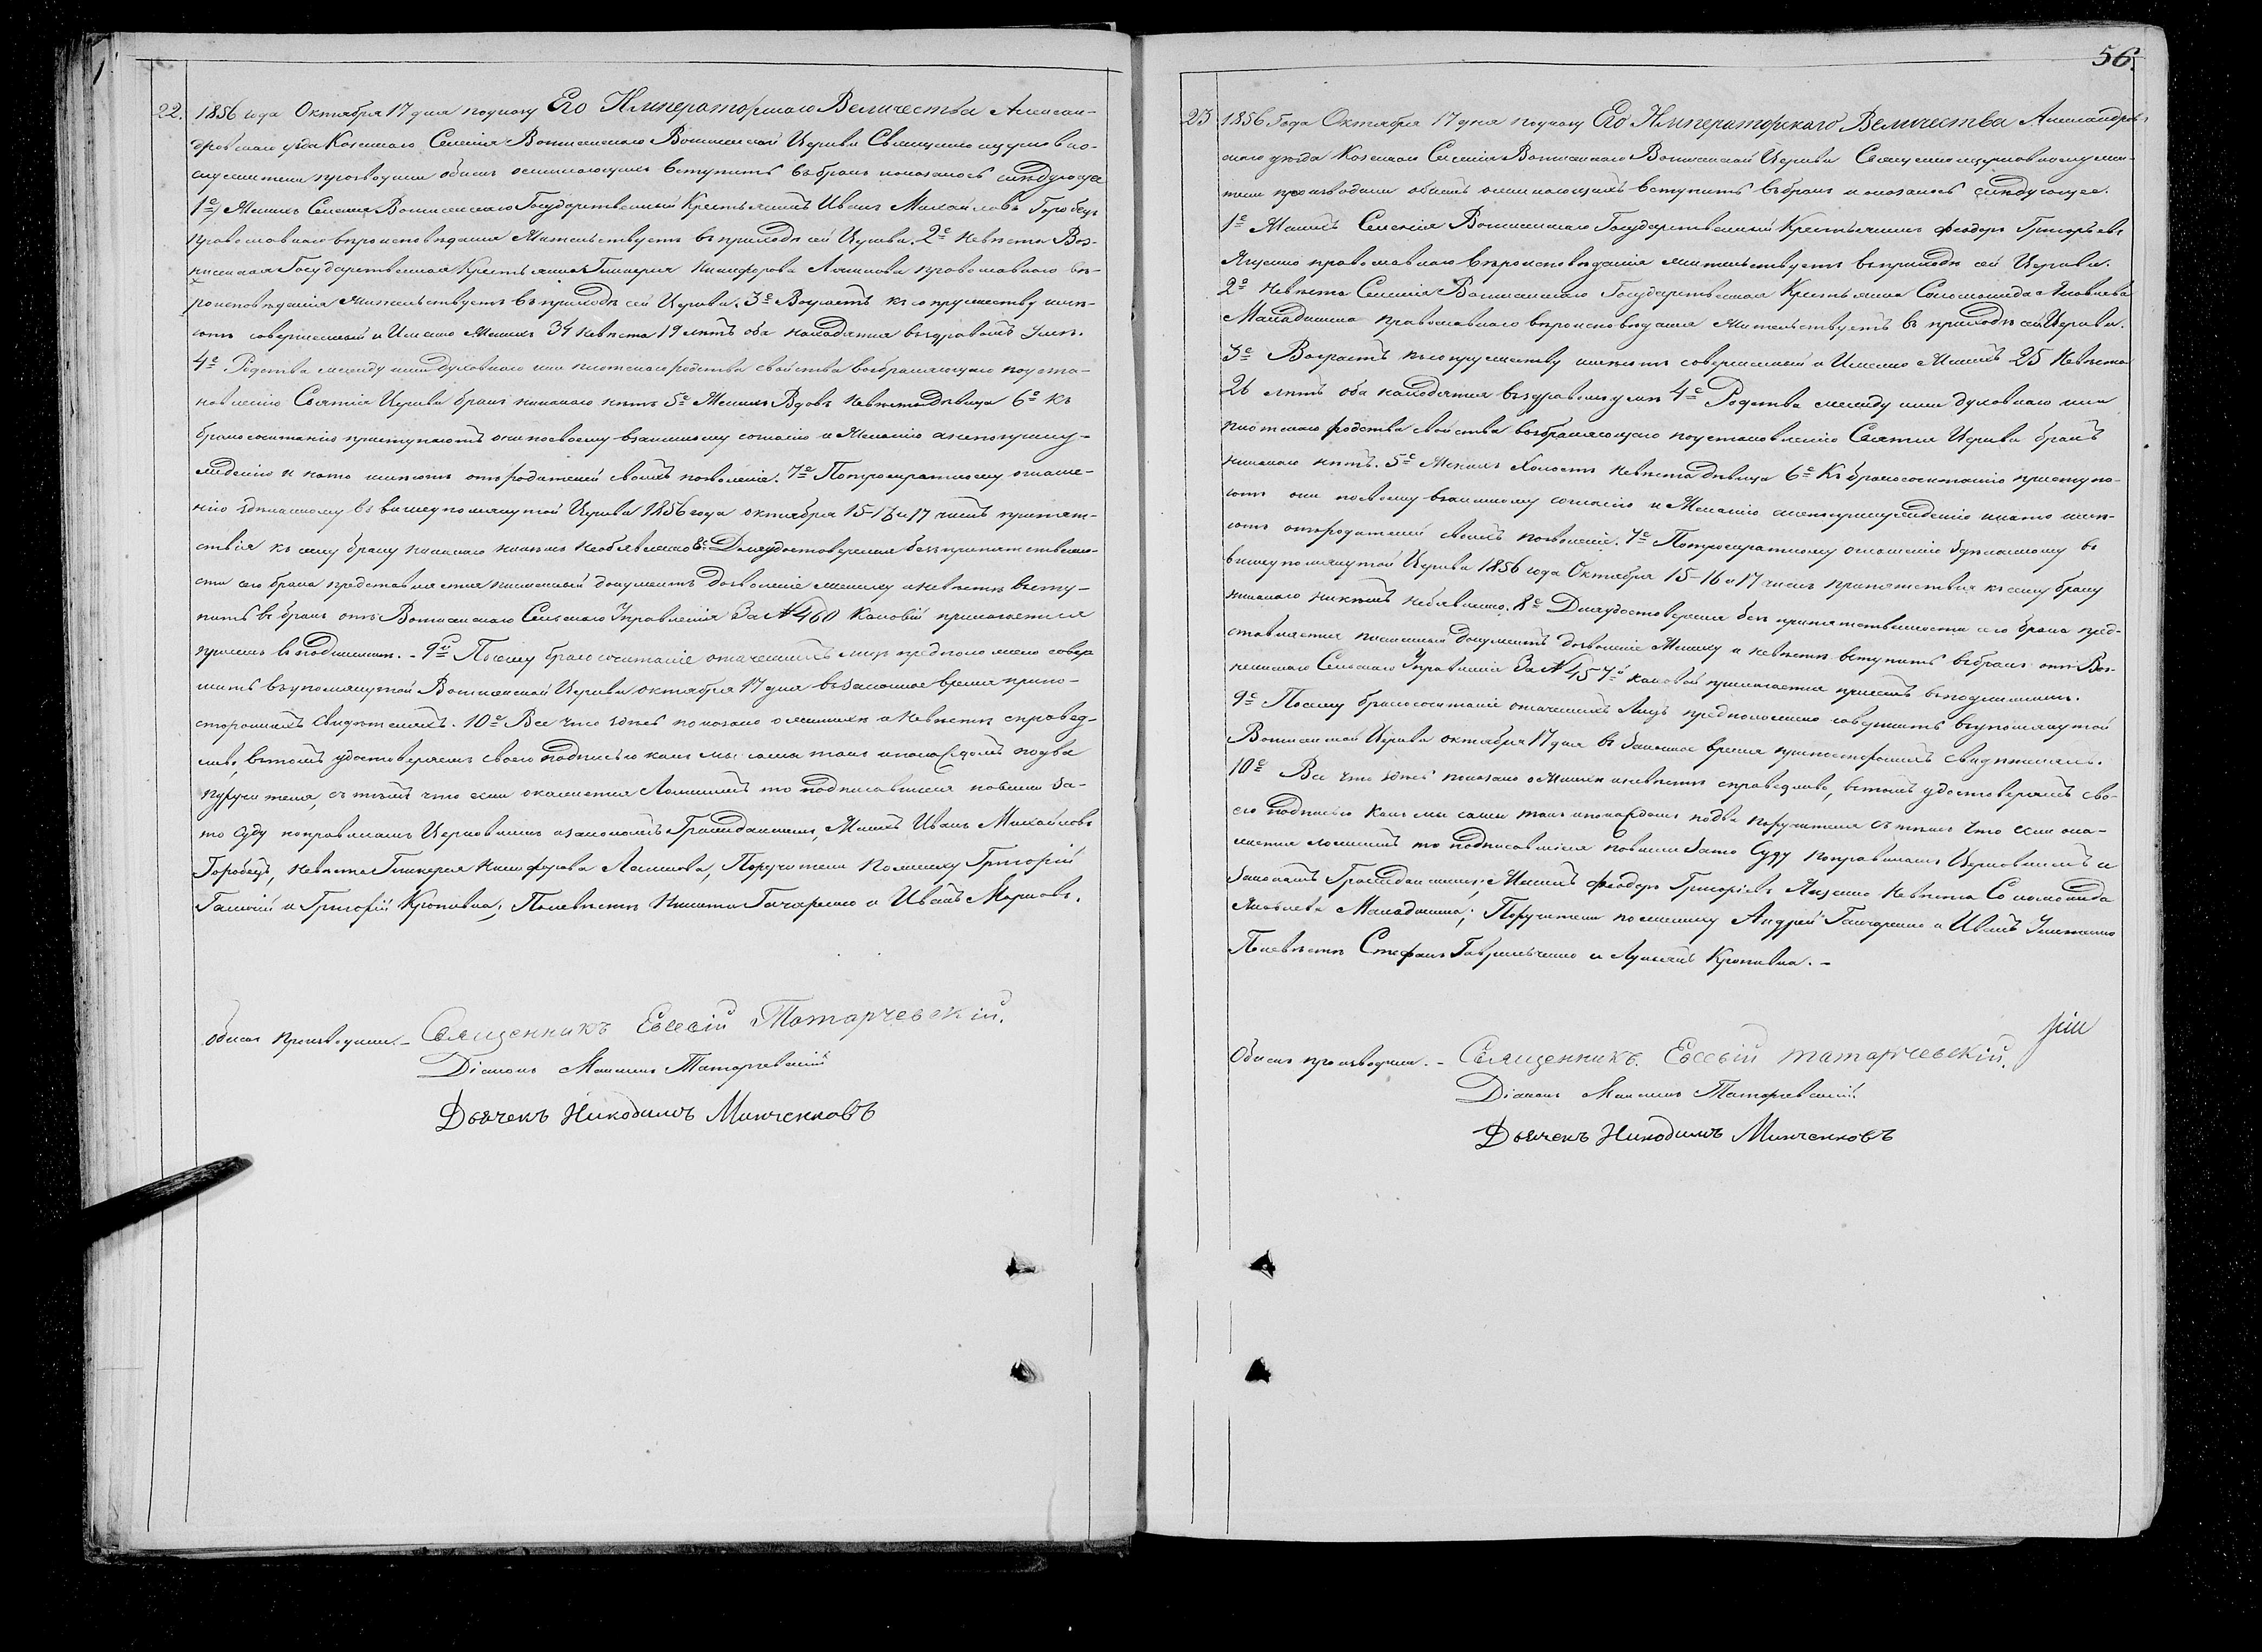 56.
22. 1856 года Октября 17 дня по указу Его Императорскаго Величества Алексан-
дровскаго уѣзда Казеннаго Селенія Вознесенскаго Вознесенской Церкви Священноцерковно-
служители производили обыскъ желающихъ вступить въ бракъ и оказалось слѣдующее
1е) Женихъ Селенія Вознесенскаго Государственный Крестьянинъ Иванъ Михайловъ Горобецъ
православнаго вѣроисповѣданія Жительствуетъ въ приходѣ сей Церкви. 2е Невѣста Воз-
несенская Государственная Крестьянка Гликерія Никифорова православнаго вѣ-
роисповѣданія Жительствуетъ въ приходѣ сей Церкви. 3е Возрастъ къ супружеству имѣ-
ютъ совершенный и Именно Женихъ 34 Невѣста 19 лѣтъ оба находятся въ здравомъ умѣ.
4е Родства между ими духовнаго или плотскаго родства свойства возбраняющаго по уста-
новленію Святыя Церкви бракъ никакого нѣтъ 5е Женихъ Вдовъ Невѣста Дѣвица 6е Къ
бракосочетанію приступаютъ они по своему взаимному согласію и Желанію а не по прину-
жденію и на то имѣютъ отъ родителей своихъ позволеніе. 7е По троекратному оглаше-
нію здѣланному въ вышеупомянутой Церкви 1856 года октября 15-16 и 17 числъ препят-
ствія къ сему браку никакого никѣмъ необъявлено 8е Для удостоверенія безпрепятственно-
сти сего брака представляется писменный документъ Дозволеніе жениху и невѣстѣ всту-
пить въ бракъ отъ Вознесенскаго Сельскаго Управленія За № 460 каковый прилагается
при семъ въ подлинникѣ. - 9е По сему бракосочетаніе означенныхъ лицъ предположено совер-
шить въ упомянутой Вознесенской Церкви октября 17 дня въ Законное время при по-
стороннихъ свидѣтеляхъ. 10е Все что здѣсь показано о женихѣ и Невѣстѣ справед-
ливо, въ томъ удостоверяемъ своею подписью какъ мы сами такъ и по каждомъ по два
поручителя, съ тѣмъ что если окажется Ложнымъ то подписавшіеся повинны за-
то Суду по правиламъ Церковнымъ и законамъ Гражданскимъ, Женихъ Иванъ Михайловъ
Горобецъ, Невѣста Гликерія Никифорова Поручители по жениху Григорій
и Григорій Кропивка; По невѣстѣ Никита Гончаренко и Иванъ Марковъ.
Обыскъ Производили. - Священникъ Евсевій Татарчевскій.
Діаконъ Максимъ Татарчевскій
Дьячекъ Никодимъ Минченковъ
23 1856 Года Октября 17 дня по указу Его Императорскаго Величества Александров-
скаго уѣзда Казеннаго Селенія Вознесенскаго Вознесенской Церкви Священноцерковнослужи-
тели производили обыскъ желающихъ вступить въ бракъ и оказалось слѣдующее.
1е Женихъ Селенія Вознесенскаго Государственный Крестьянинъ Феодоръ Григорьевъ
Яценко православнаго вѣроисповѣданія жительствуетъ въ приходѣ сей Церкви.
2е Невѣста Селенія Вознесенскаго Государственная Крестьянка Соломонида Яковлева
православнаго вѣроисповѣданія Жительствуетъ въ приходѣ сей Церкви.
3е Возрастъ къ супружеству имѣютъ совершенный и Именно Женихъ 25 Невѣста
26 лѣтъ оба находятся въ здравомъ умѣ 4е Родства между ими духовнаго или
плотскаго родства свойства возбраняющаго по установленію Святыя Церкви бракъ
никакого нѣтъ. 5е Женихъ Холостъ Невѣста дѣвица 6е Къ бракосочетанію приступа-
ютъ они по своему взаимному согласію и Желанію а не по принужденію и на то имѣ-
ютъ отъ родителей своихъ позволеніе. 7е По троекратному оглашенію здѣланному въ
вышеупомянутой Церкви 1856 года Октября 15-16 и 17 числъ препятствія къ сему браку
никакого никѣмъ необявлено. 8е Для удостоверенія безпрепятственности сего брака пред-
ставляется писменный документъ дозволеніе Жениху и невѣстѣ вступить въ бракъ отъ Воз-
несенскаго Сельскаго Управленія За № 457 каковой прилагается при семъ въ подлинникѣ.
9е По сему бракосочетаніе означенныхъ Лицъ предположено совершить въ упомянутой
Вознесенской Церкви октября 17 дня въ Законное время при постороннихъ свидѣтеляхъ.
10е Все что здѣсь показано о Женихѣ и невѣстѣ справедливо, въ томъ удостоверяемъ сво-
ею подписью какъ мы сами такъ и по каждомъ по два поручителя съ тѣмъ что если ока-
жется ложнымъ то подписавшіеся повинны за то Суду по правиламъ Церковнымъ и
Законамъ Гражданскимъ; Женихъ Феодоръ Григорьевъ Яценко Невѣста Соломонида
Яковлева Поручители по жениху Андрей Гончаренко и Иванъ
По невѣстѣ Стефанъ Гавриленко и Лукьянъ Кропивка. -
Обыскъ производили. - Священникъ. Евсевій Татарчевскій.
Діаконъ Максимъ Татарчевскій
Дьячекъ Никодимъ Минченковъ